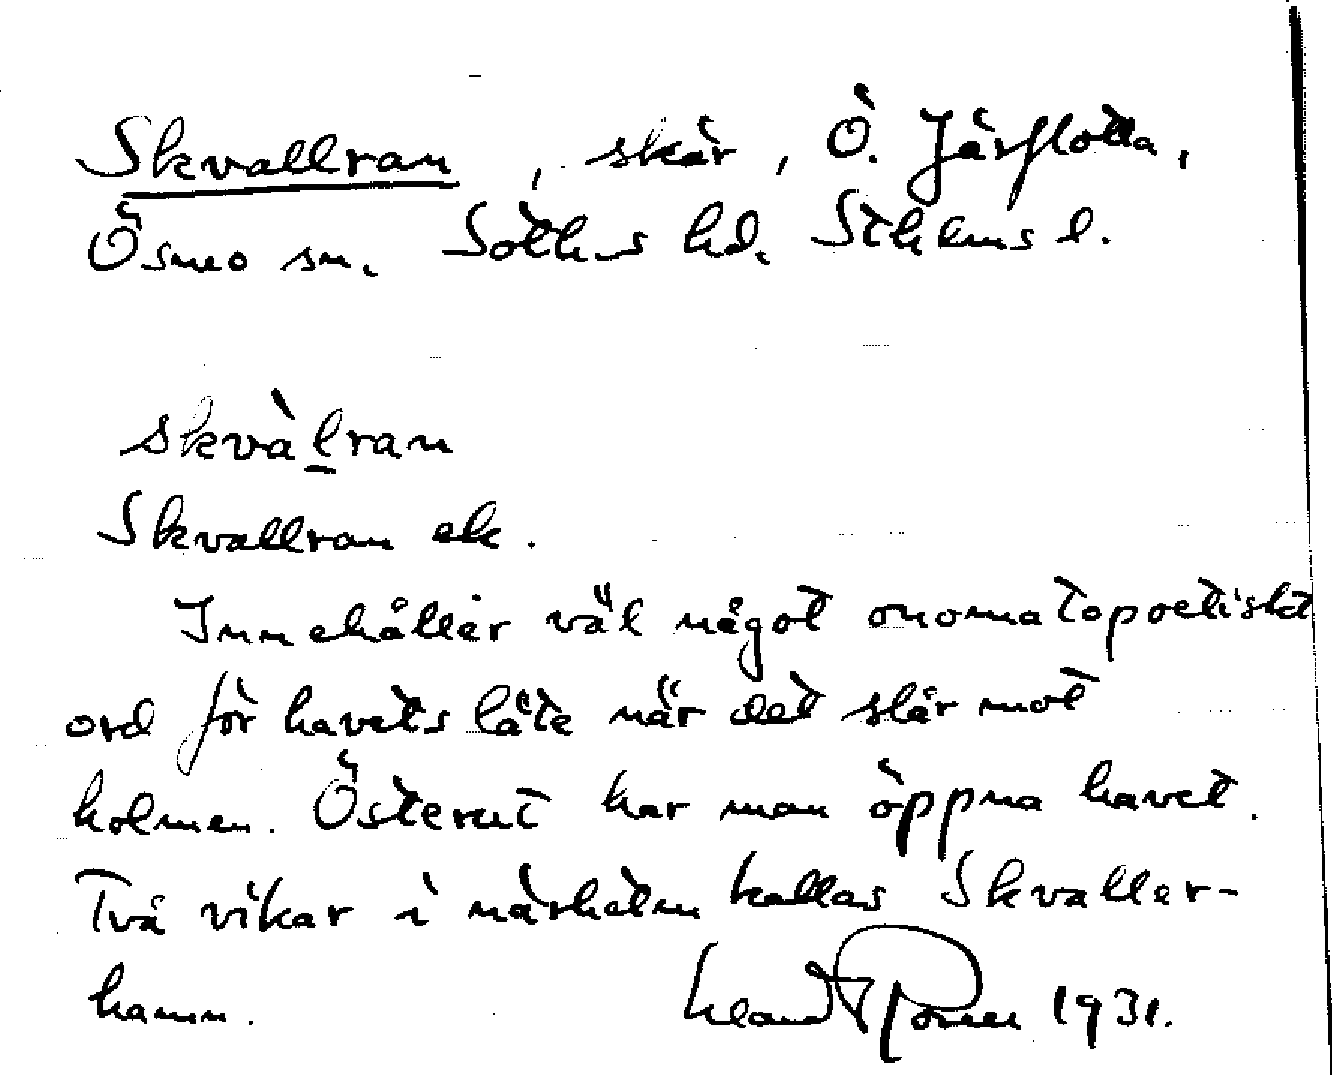 Skvallran, skär, Ö. Järflotta,
Ösmo sn. Soth-s hd. Sthlms l.
skvàlran
Skvallran ek.
Innehåller väl något onomatopoetiskt
ord för havets läte när det slår mot
holmen. Österut har man öppna havet.
Två vikar i närheten kallas Skvaller-
hamn. 1931.